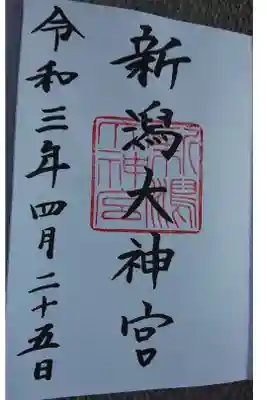 新潟大神宮
令和三年四月二十五日